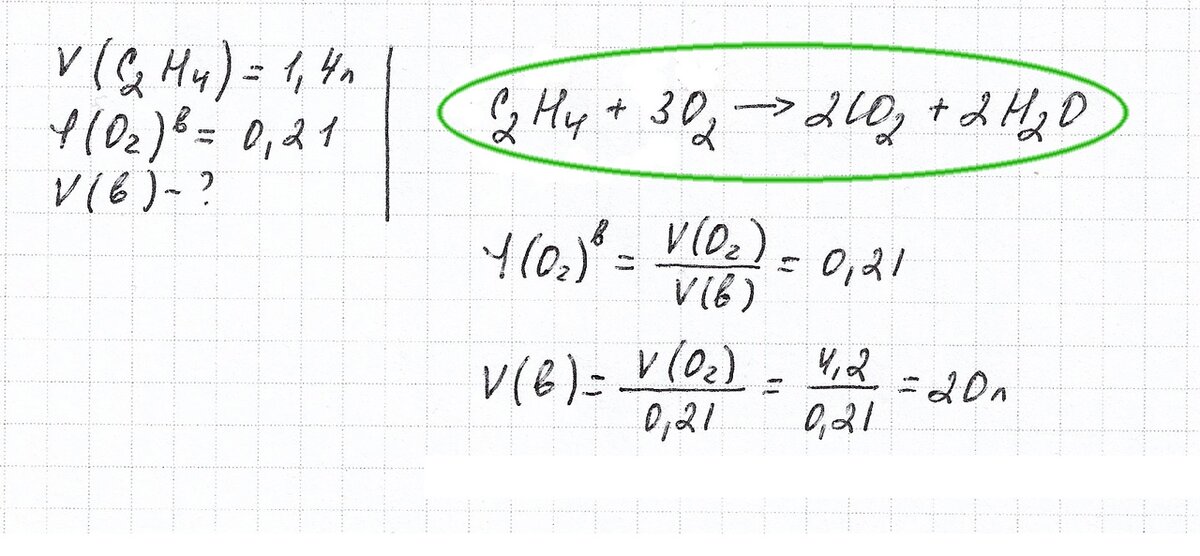 V(C₂H₄) = 1,4л
φ(O₂)ᵇ = 0,21
V(в) - ?
C₂H₄ + 3O₂ → 2CO₂ + 2H₂O
φ(O₂)ᵇ = V(O₂)/V(в) = 0,21
V(в) = V(O₂)/0,21 = 4,2/0,21 = 20л